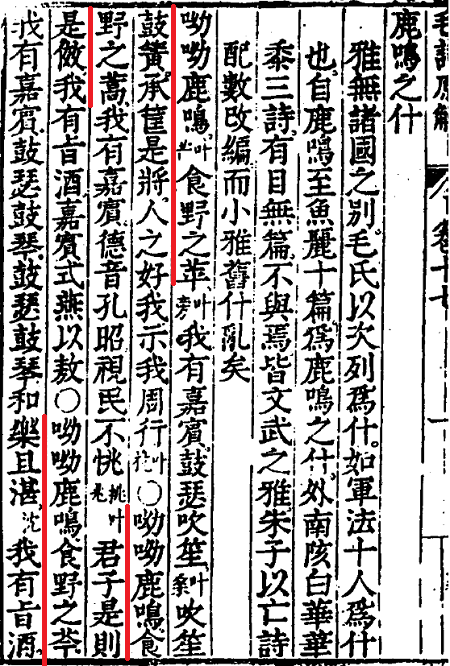 毛詩原解 卷十七 一
鹿鳴之什
雅無諸國之別毛氏以次列爲什如軍法十人爲什
也自鹿鳴至魚麗十篇爲鹿鳴之什外南陔白華華
黍三詩有目無篇不與焉皆文武之雅朱子以亡詩
配數改編而小雅舊什亂矣
呦呦鹿鳴叶芒食野之苹叶旁我有嘉賓鼓瑟吹笙叶桑吹笙
鼓簧承筐是將人之好我示我周行叶杭○呦呦鹿鳴食
野之蒿我有嘉賓德音孔昭視民不恌君子是則
是傚我有旨酒嘉賓式燕以敖○呦呦鹿鳴食野之芩
我有嘉賓鼓瑟鼓琴鼓瑟鼓琴和樂且湛沈我有旨酒